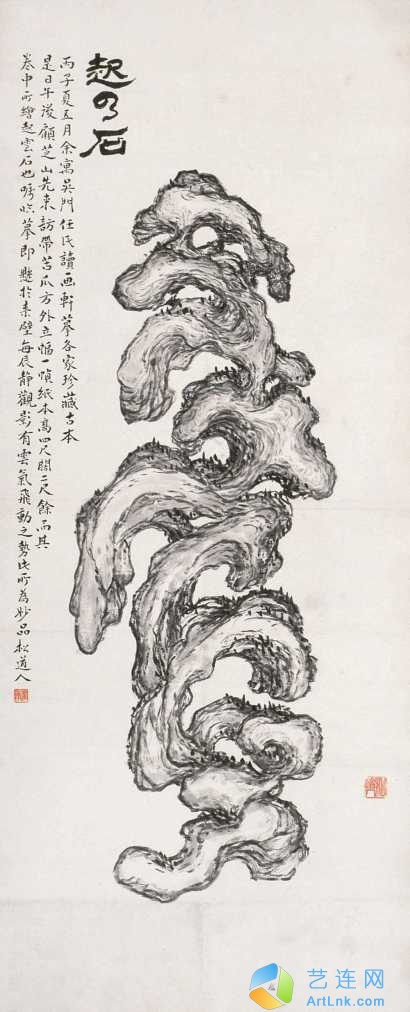 起云石
丙子夏五月余寓吳門任氏讀画軒摹各家珍藏古本
是日午後顧芝山先来訪帶苦瓜方外立幅一幀紙本高四尺闊二尺餘而其
卷中所繪起雲石也臨摹即懸於素壁每辰靜觀影有雲氣飛動之勢此所為妙品松道人
艺连网
ArtLnk.com